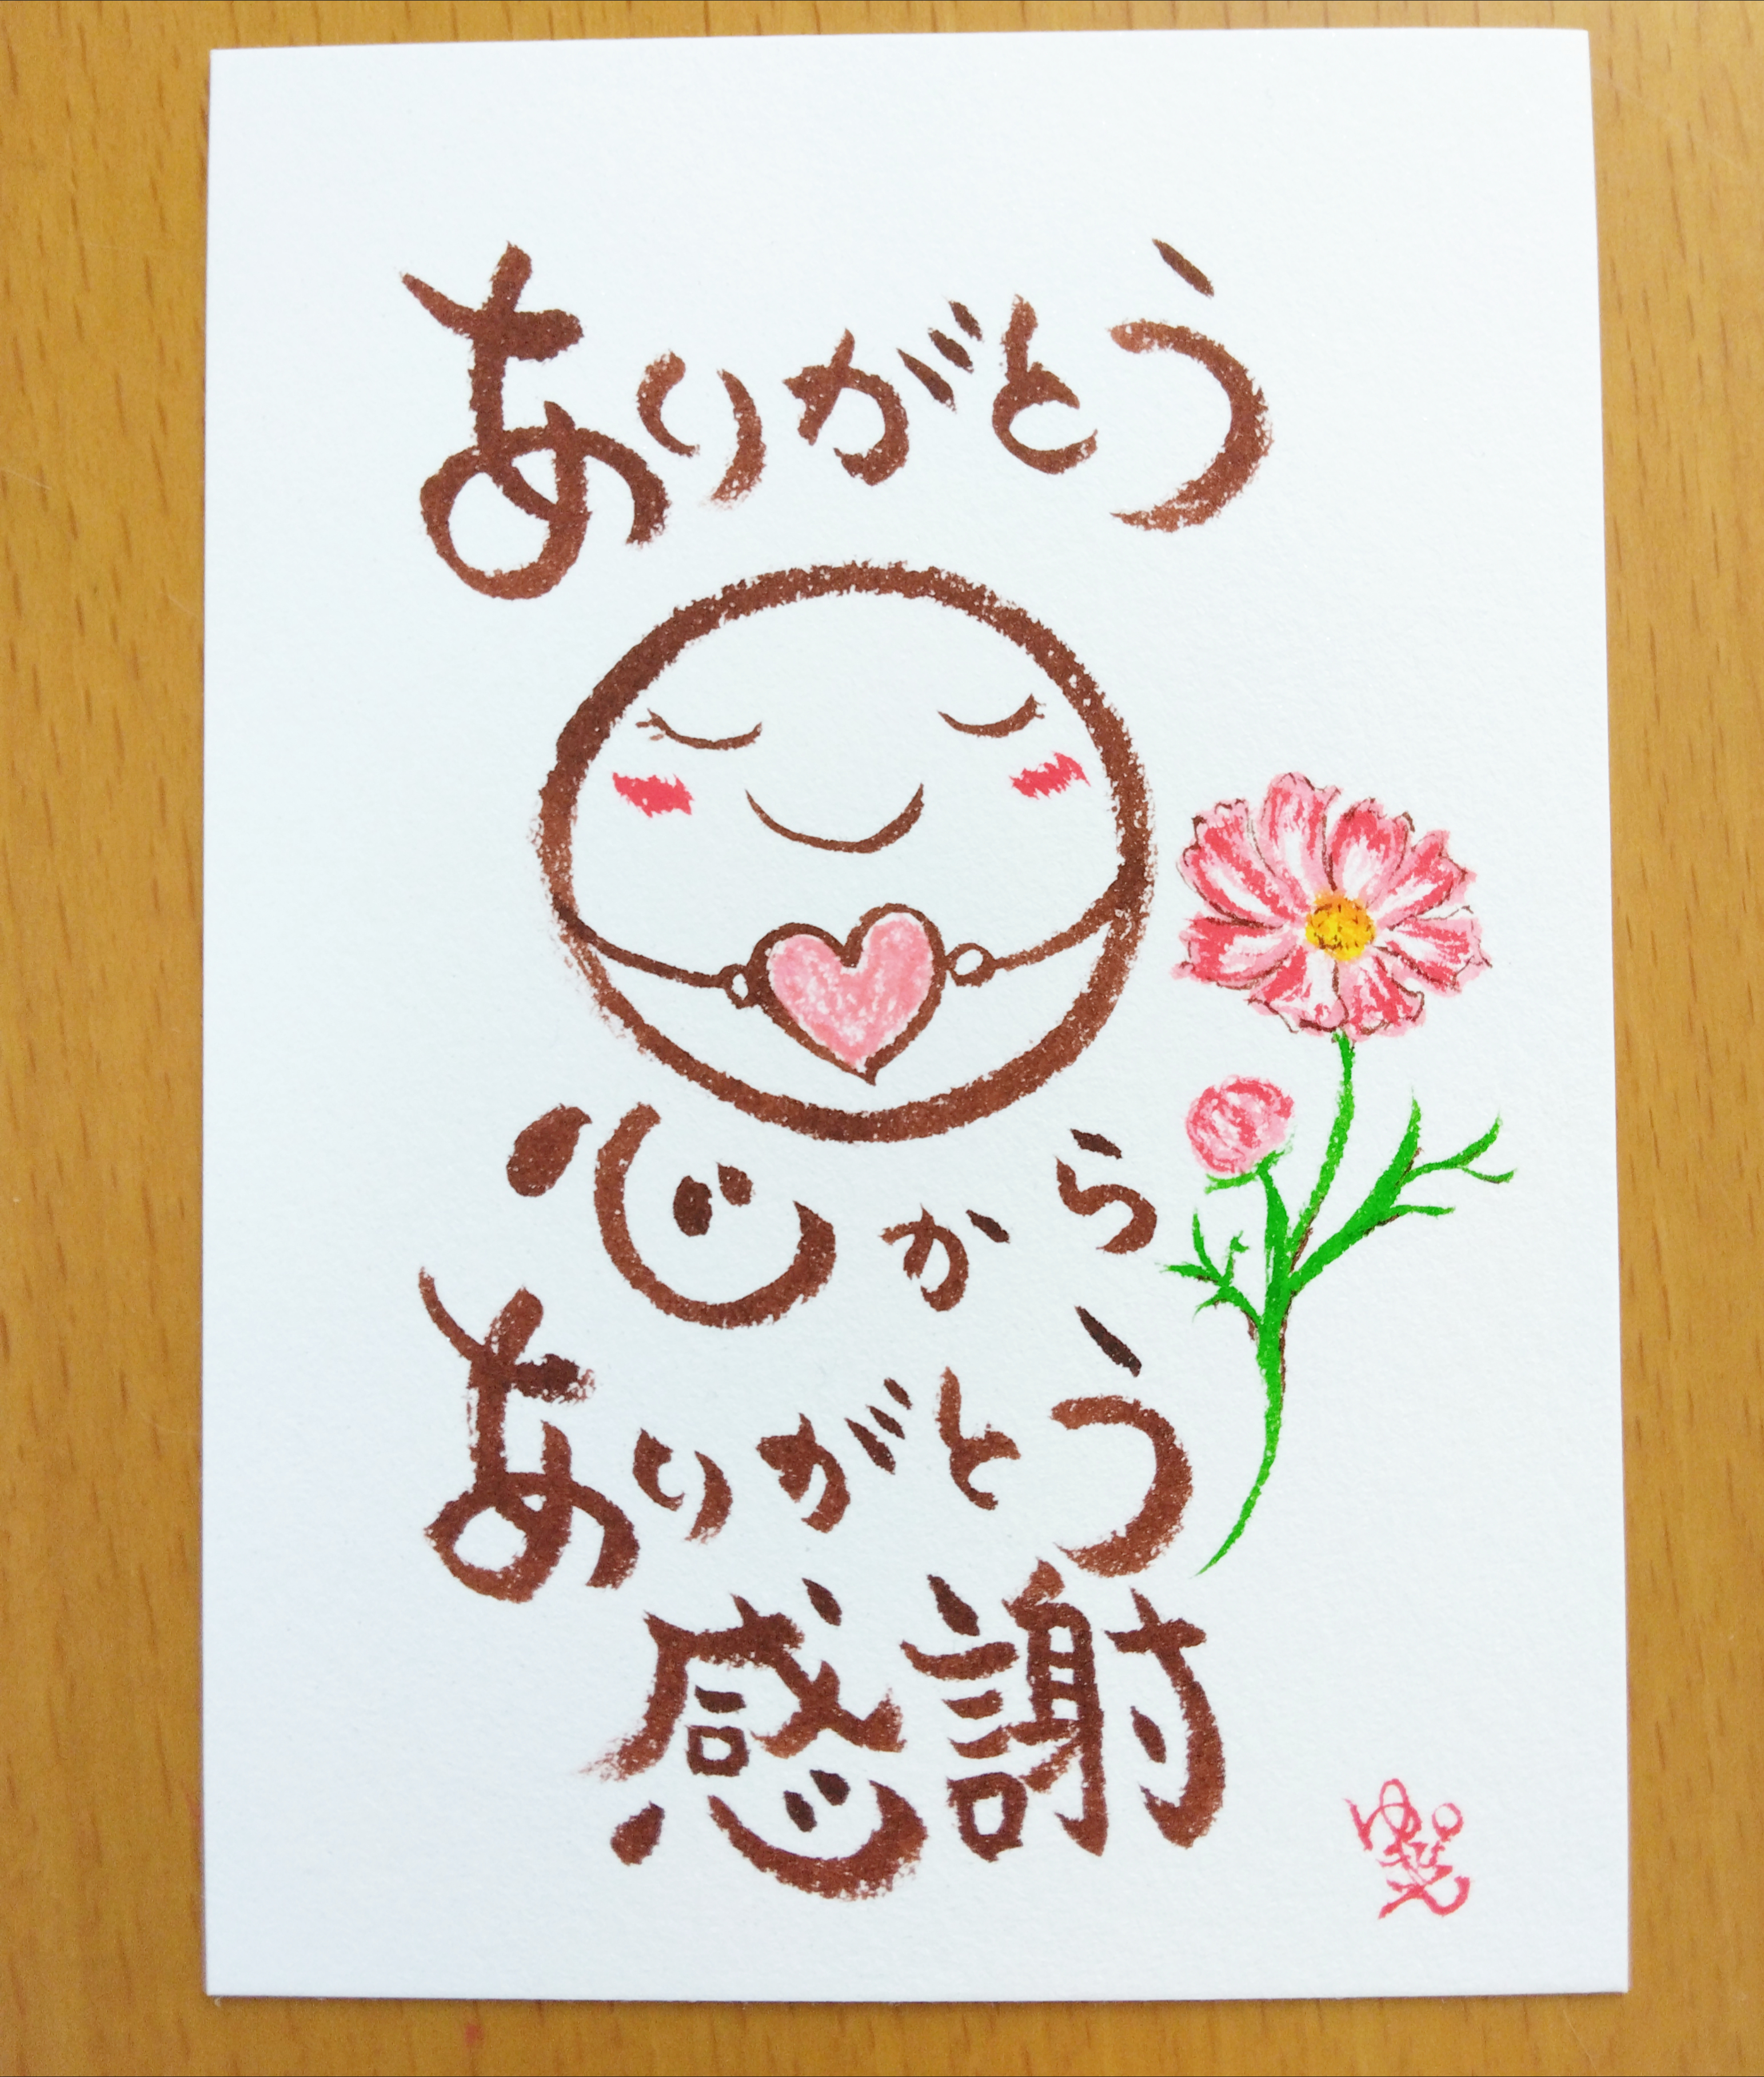 ありがとう
心から
ありがとう
感謝